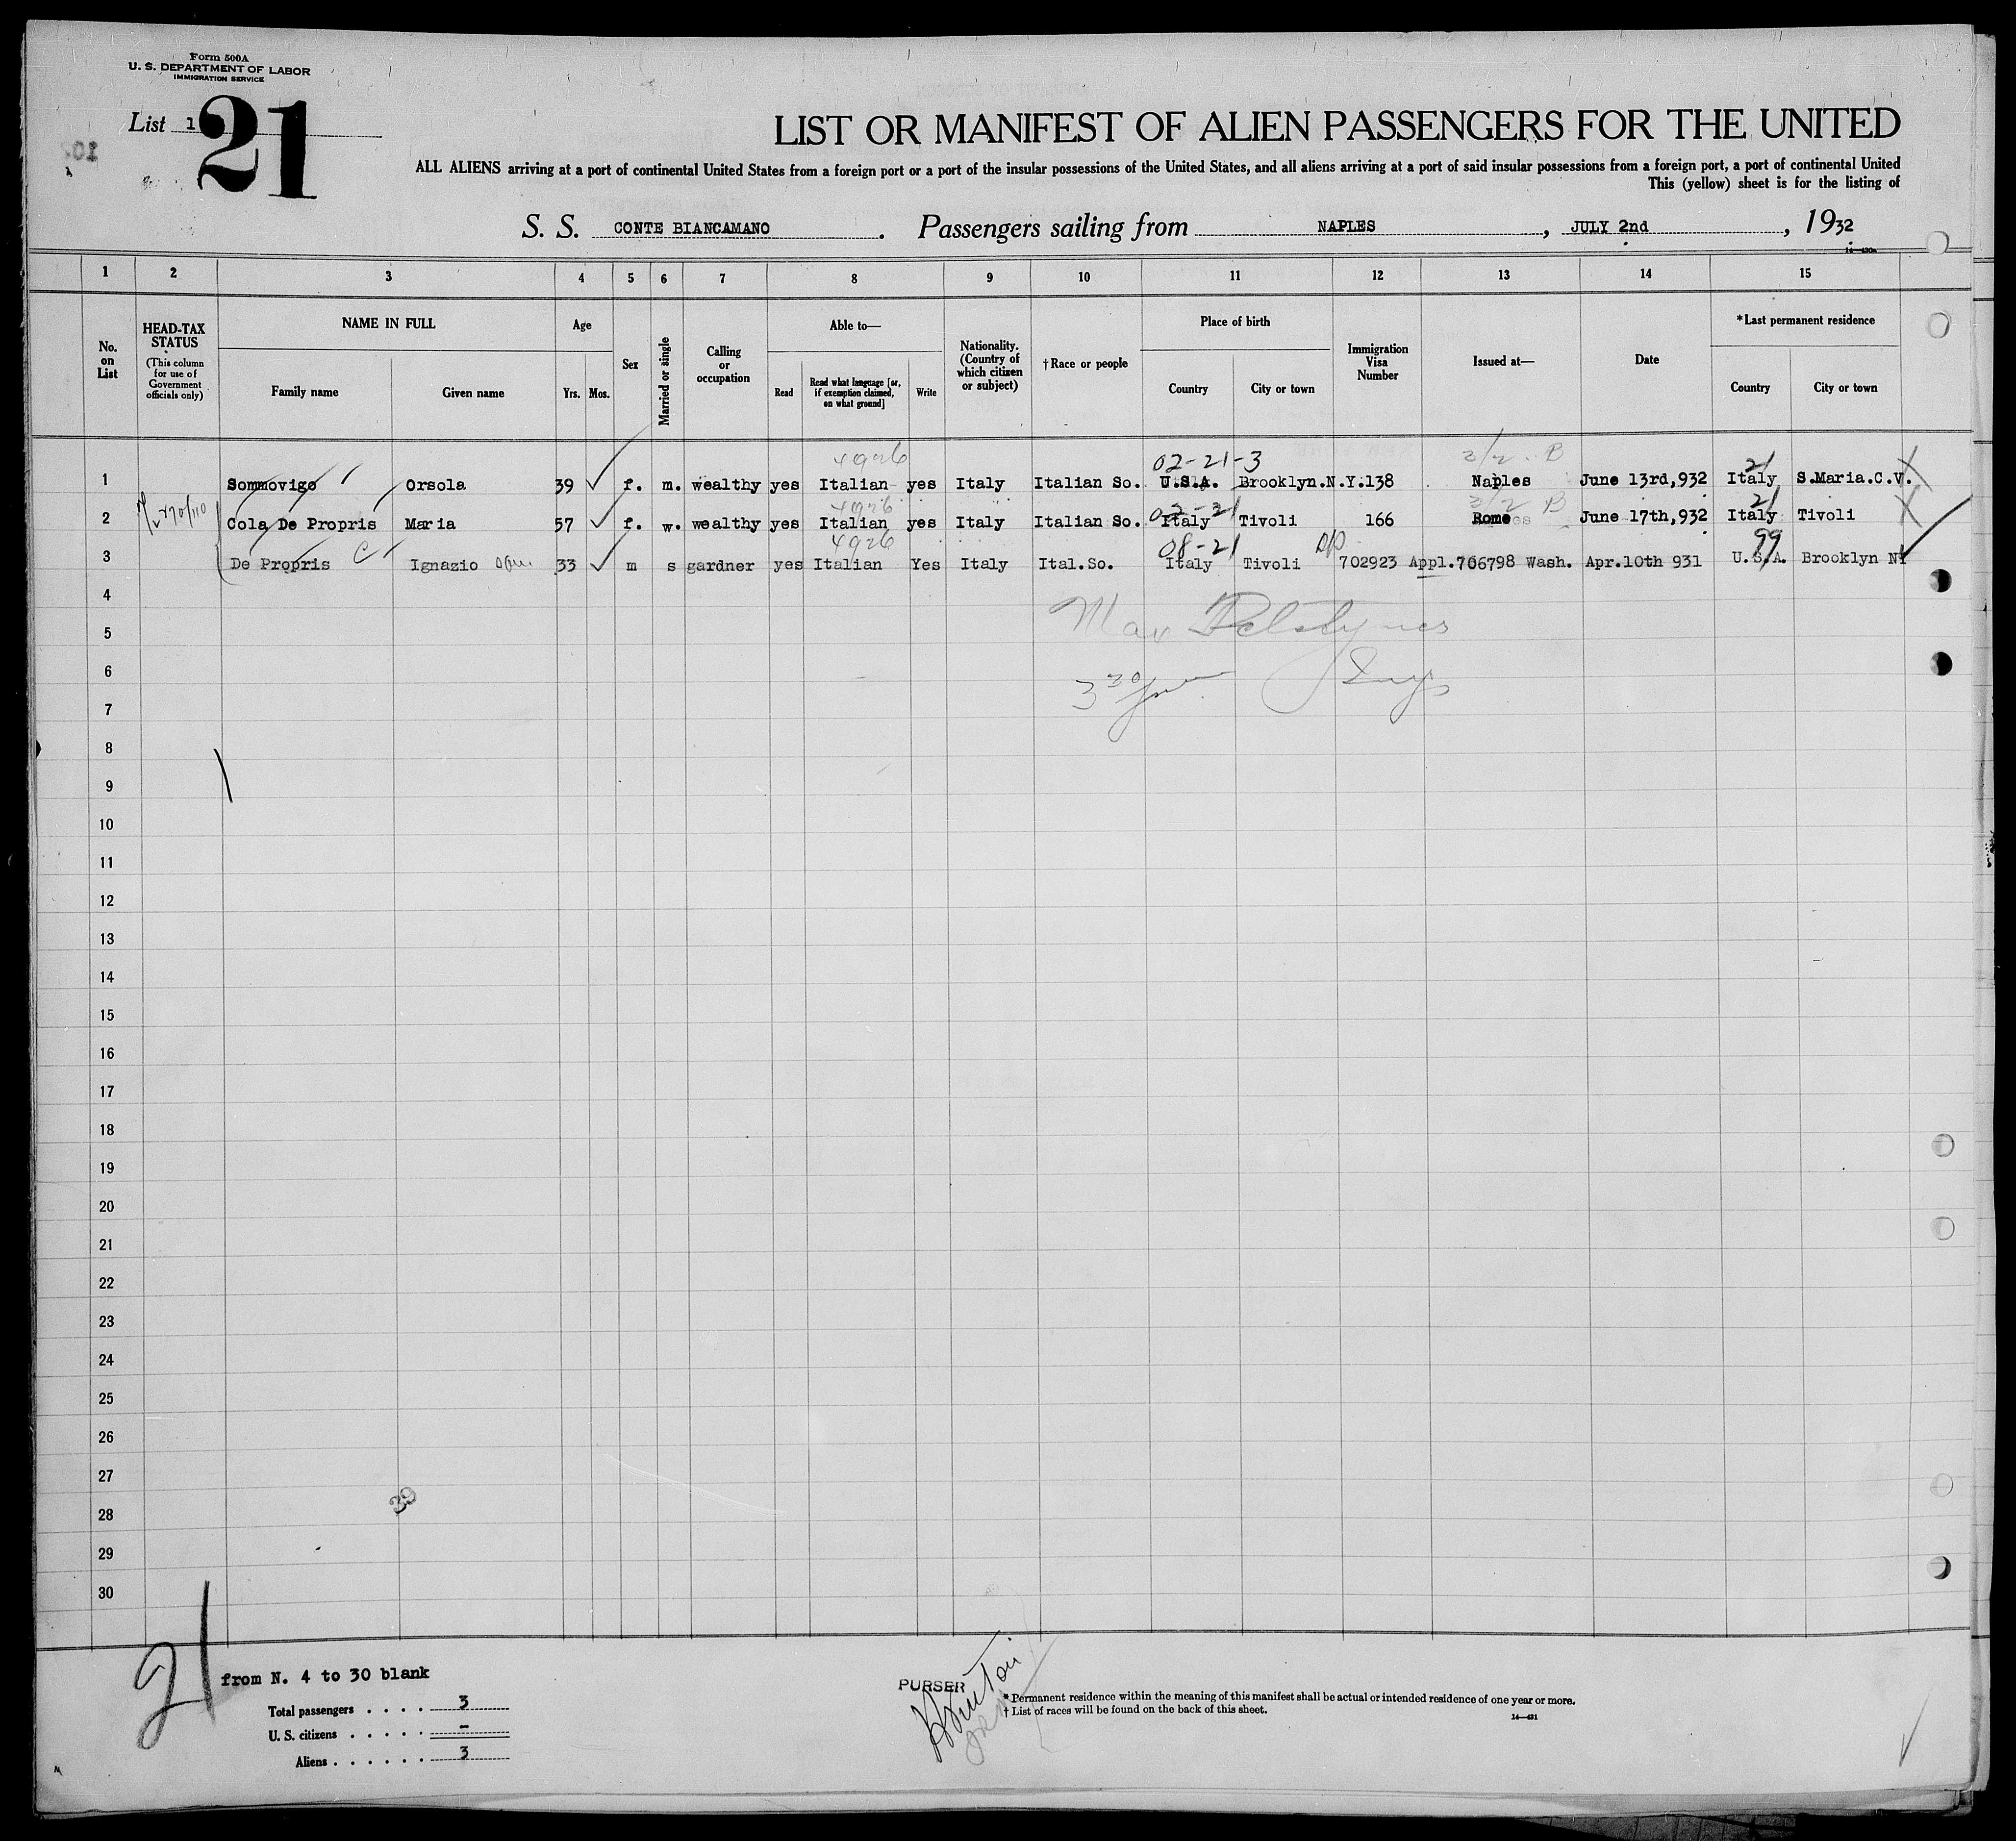 Form 500A
U. S. DEPARTMENT OF LABOR
IMMIGRATION SERVICE
List 1
21
LIST OR MANIFEST OF ALIEN PASSENGERS FOR THE UNITED
ALL ALIENS arriving at a port of continental United States from a foreign port or a port of the insular possessions of the United States, and all aliens arriving at a port of said insular possessions from a foreign port, a port of continental United
This (yellow) sheet is for the listing of
S. S. CONTE BIANCAMANO. Passengers sailing from NAPLES, JULY 2nd, 1932
1 2 3 4 5 6 7 8 9 10 11 12 13 14 15
No. on List
HEAD-TAX STATUS
(This column for use of Government officials only)
NAME IN FULL
Family name Given name
Age
Yrs. Mos.
Sex
Married or single
Calling or occupation
Able to—
Read
Read what language [or, if exemption claimed, on what ground]
Write
Nationality. (Country of which citizen or subject)
†Race or people
Place of birth
Country City or town
Immigration Visa Number
Issued at—
Date
*Last permanent residence
Country City or town
4926 02-21-3 3/2 B 21
1 Sommovigo Orsola 39 f. m. wealthy yes Italian yes Italy Italian So. U.S.A. Brooklyn.N.Y. 138 Naples June 13rd,932 Italy S.Maria.C.V.
4926 02-21 3/2 B 21
2 Cola De Propris Maria 57 f. w. wealthy yes Italian yes Italy Italian So. Italy Tivoli 166 Rome June 17th,932 Italy Tivoli
4926 08-21 99
3 De Propris C Ignazio 33 m s gardner yes Italian Yes Italy Ital.So. Italy Tivoli 702923 Appl.706798 Wash. Apr.10th 931 U.S.A. Brooklyn NY
4
5
6
7
8
9
10
11
12
13
14
15
16
17
18
19
20
21
22
23
24
25
26
27
28
29
30
39
21
from N. 4 to 30 blank
Total passengers . . . . 3
U. S. citizens . . . . . –
Aliens . . . . . . 3
PURSER
* Permanent residence within the meaning of this manifest shall be actual or intended residence of one year or more.
† List of races will be found on the back of this sheet.
14—431